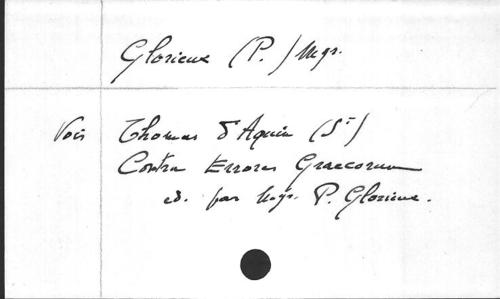 Glorieux (P.) Mgr.
Voir Thomas d'Aquin (St)
Contra Errores Graecorum
ed. par Mgr. P. Glorieux.